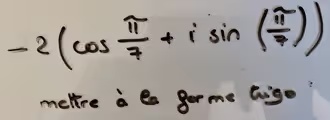 - 2 ( cos π/7 + i sin (π/7) )
mettre à la forme trigo :